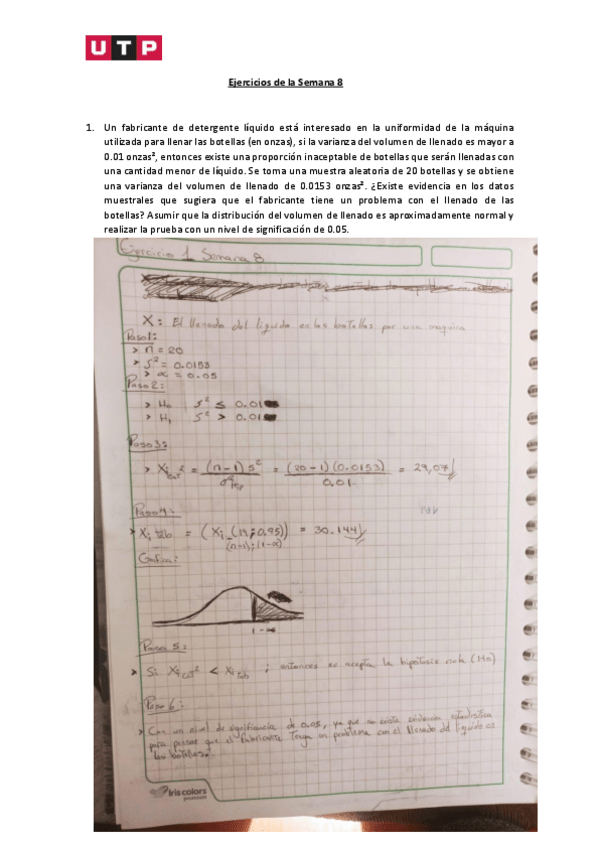 UTP
Ejercicios de la Semana 8
1. Un fabricante de detergente líquido está interesado en la uniformidad de la máquina
utilizada para llenar las botellas (en onzas), si la varianza del volumen de llenado es mayor a
0.01 onzas², entonces existe una proporción inaceptable de botellas que serán llenadas con
una cantidad menor de líquido. Se toma una muestra aleatoria de 20 botellas y se obtiene
una varianza del volumen de llenado de 0.0153 onzas². ¿Existe evidencia en los datos
muestrales que sugiera que el fabricante tiene un problema con el llenado de las
botellas? Asumir que la distribución del volumen de llenado es aproximadamente normal y
realizar la prueba con un nivel de significación de 0.05.
Ejercicio 1 Semana 8
X: El llenado del liquido en las botellas por una maquina
Paso1:
> n = 20
> S² = 0.0153
> α = 0.05
Paso2:
> H₀ S² ≤ 0.01
> H₁ S² > 0.01
Paso3:
> Xi² = (n-1) S² = (20-1)(0.0153) = 29,07
0.01
Paso4:
> Xi tab = (Xi (19; 0.95)) = 30.144
(n-1); (1-α)
Grafica:
1-α
Paso 5:
> Si Xi cal² < Xi tab ; entonces se acepta la hipotesis nula (H₀)
Paso 6:
> Con un nivel de significancia de 0.05, ya que no existe evidencia estadistica
para pensar que el fabricante tenga un problema con el llenado del liquido
las botellas.
iris colors
premium